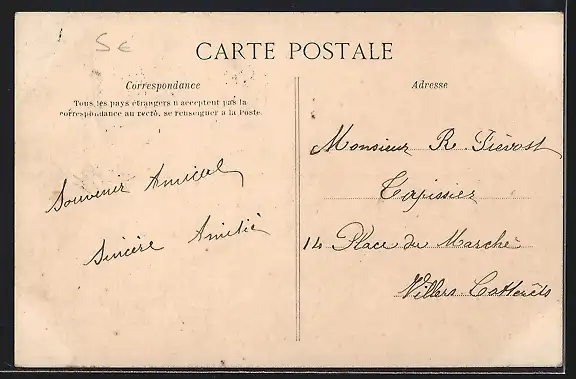 5 €
CARTE POSTALE
Correspondance
Tous les pays étrangers n'acceptent pas la
correspondance au recto, se renseigner à la Poste.
Souvenir Amical
Sincère Amitié
Adresse
Monsieur R. Piévost
Tapissier
14 Place du Marché
Villers-Cotterêts